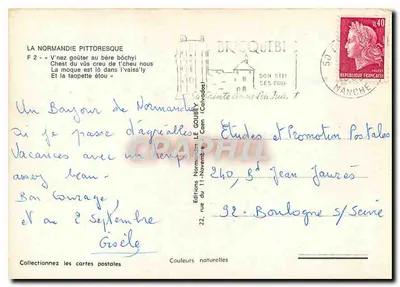 LA NORMANDIE PITTORESQUE
F 2 - « V'nez goûter au bère bôchyi
Chest du vûs creu de t'cheu nous
La moque est lô dans l'vais'ly
Et la taopette étou »
BRICQUEBEC
SON SITE
50
MANCHE
0,40
REPUBLIQUE FRANÇAISE
Un Bonjour de Normandie
où je passe d'agréables
Vacances avec un temps
assez beau -
Bon Courage,
et au 2 Septembre
Gisèle
Editions Normandes LE GOUBEY
22, rue du 11-Novembre - Caen (Calvados)
Etudes et Promotion Postales
240, Bd Jean Jaurès
92 - Boulogne s/Seine
Collectionnez les cartes postales
Couleurs naturelles
CPAPHIL